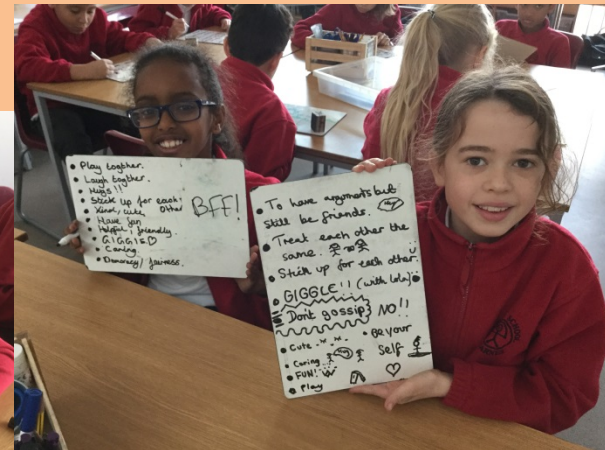 • Play togther.
• Laugh togther.
• Hugs !!
• Stick up for each other
• Kind, cute,
• Have fun
• Helpful, friendly.
• GIGGLES♡
• Caring
• Democracy/ fairness.
BFF!
• To have arguments but
still be friends.
• Treat each other the
same.
• Stick up for each other.
• GIGGLE!! (with lola)
• Don't gossip NO!!
• Cute
• Be your
self
• Caring
• FUN!
• Play